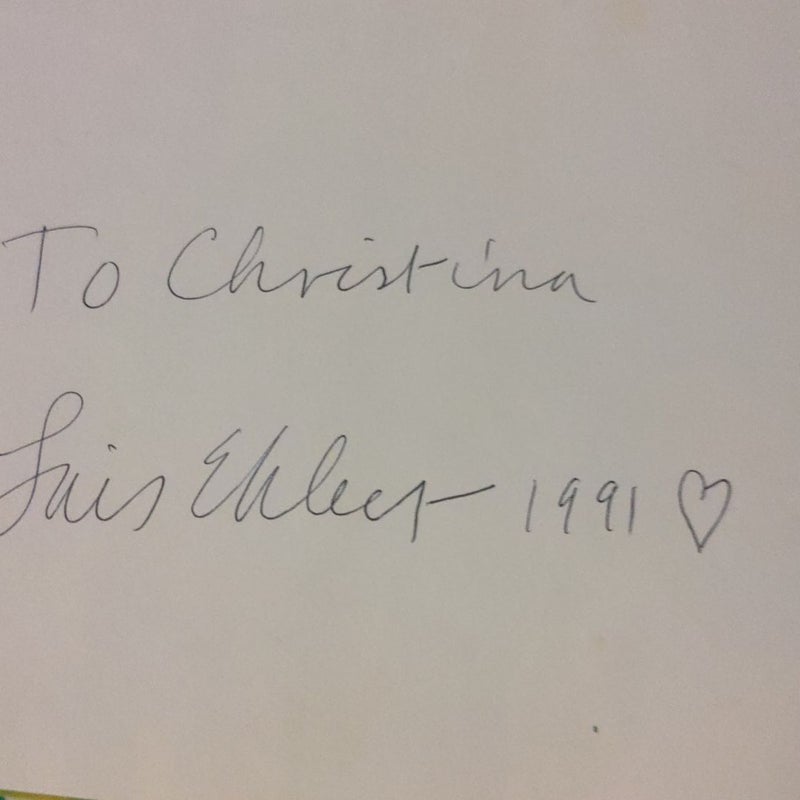 To Christina
Lois Ehlert 1991 ♡